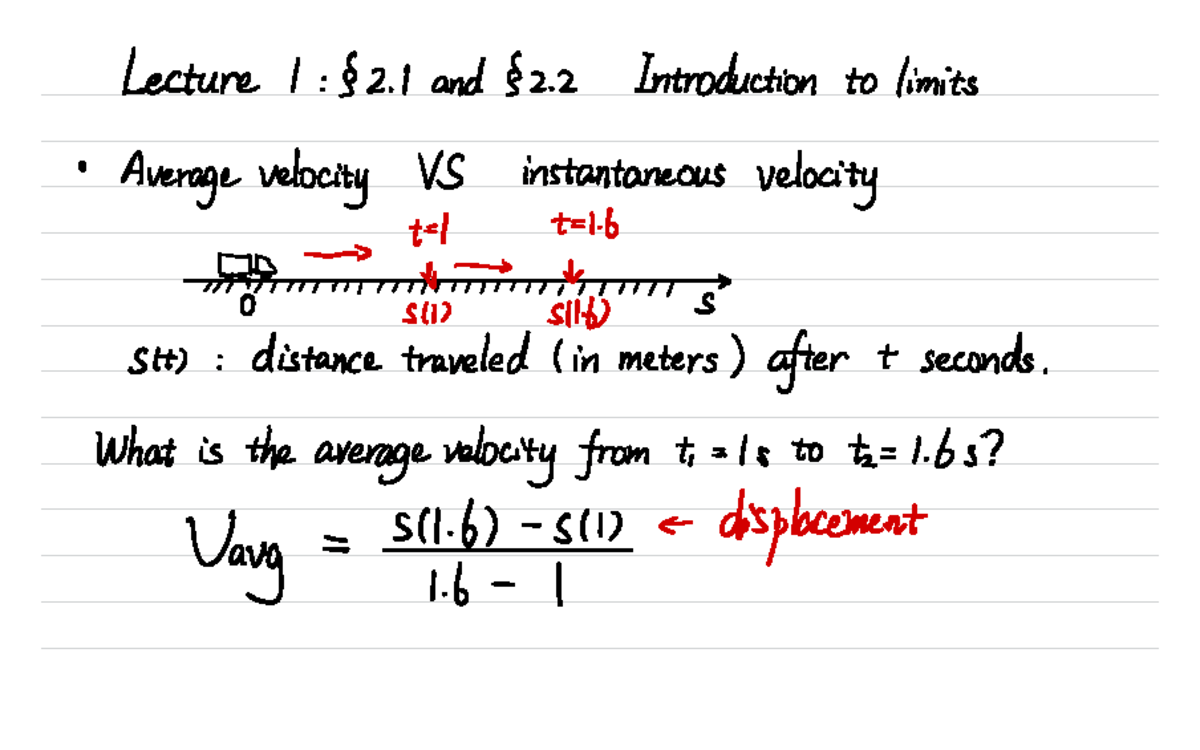 Lecture 1 : § 2.1 and § 2.2 Introduction to limits
• Average velocity VS instantaneous velocity
t=1 t=1.6
0 S(1) S(1.6) S
S(t) : distance traveled (in meters) after t seconds.
What is the average velocity from t₁ = 1s to t₂ = 1.6s?
Vavg = S(1.6) - S(1) ← displacement
1.6 - 1